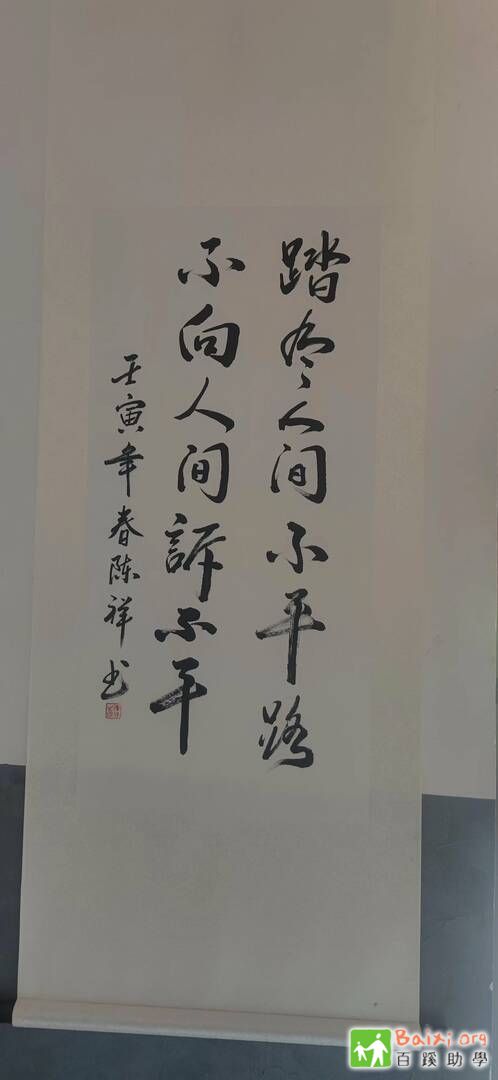 踏尽人间不平路
不向人间訴不平
壬寅年春陈祥书
Baixi.org
百蹊助學